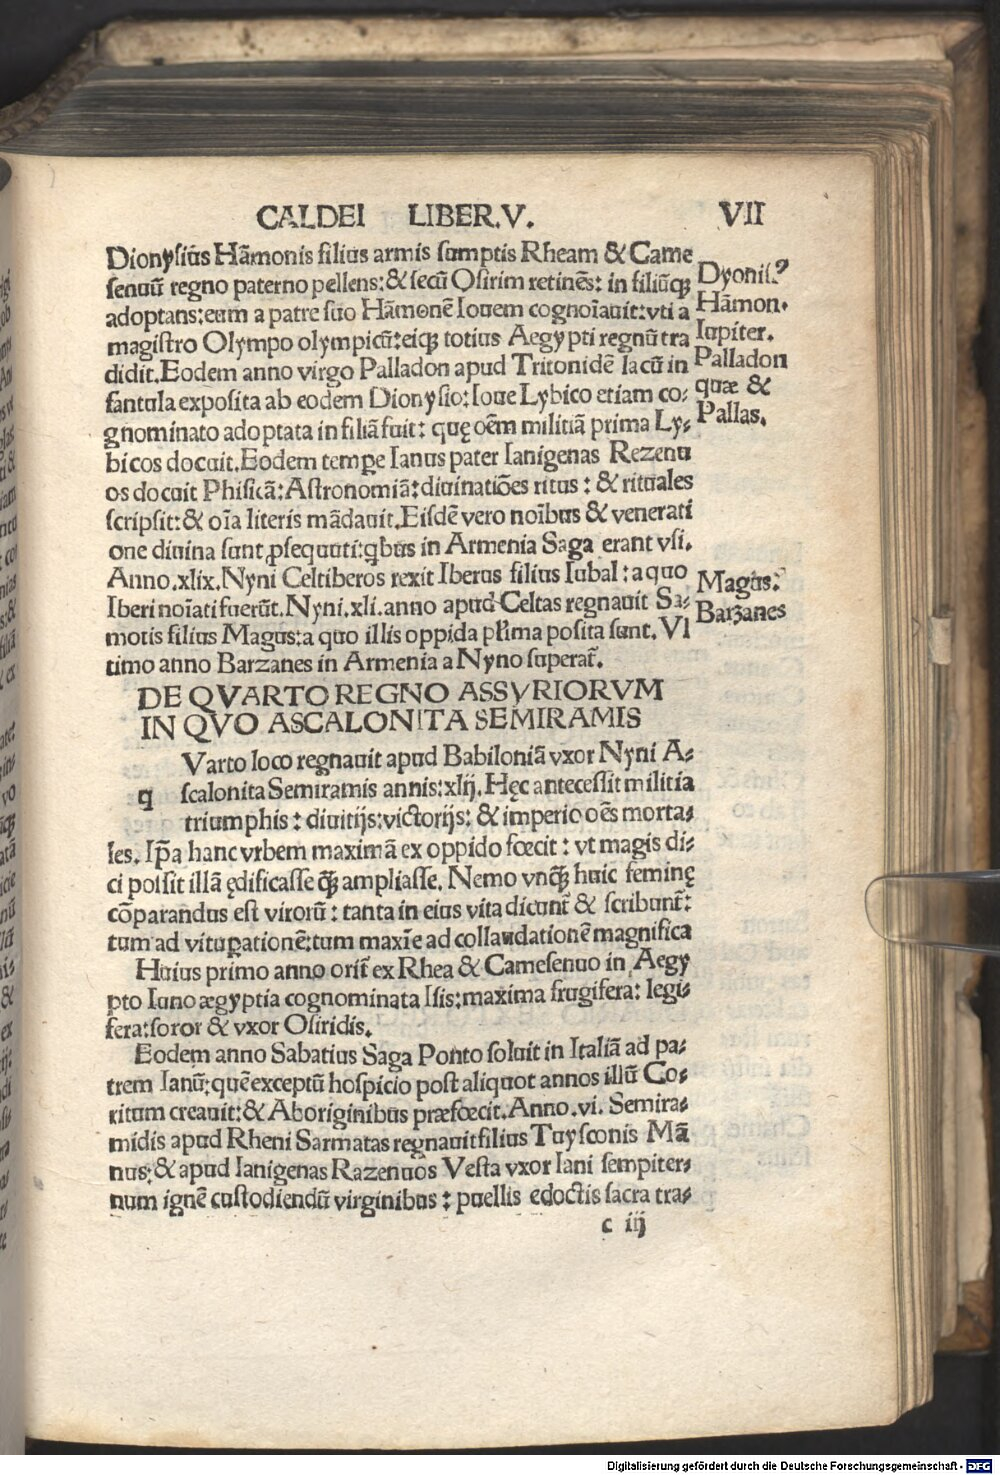 CALDEI LIBER.V. VII
Dionysiūs Hāmonis filius armis sumptis Rheam & Came
senuū regno paterno pellens: & secū Osirim retinēs: in filiūq́
adoptans: eum a patre suo Hāmonē Iouem cognoīauit: vti a
magistro Olympo olympicū: eiq́ totius Aegypti regnū tra
didit. Eodem anno virgo Palladon apud Tritonidē lacū in
fantula exposita ab eodem Dionysio: Ioue Lybico etiam co-
gnominato adoptata in filiā fuit: quę oēm militiā prima Ly-
bicos docuit. Eodem tempe Ianus pater Ianigenas Rezenu
os docuit Phisicā: Astronomiā: diuinatiōes ritus: & rituales
scripsit: & oīa literis mādauit. Eisdē vero noībus & venerati
one diuina sunt ꝓsequuti: qbus in Armenia Saga erant vsi.
Anno.xlix. Nyni Celtiberos rexit Iberus filius Iubal: a quo
Iberi noīati fuerūt. Nyni.xli.anno apud Celtas regnauit Sa-
motis filius Magus: a quo illis oppida plīma posita sunt. Vl
timo anno Barzanes in Armenia a Nyno superat̄.
Dyonis?
Hāmon.
Iupiter.
Palladon
quæ &
Pallas.
Magus.
Barzanes
DE QVARTO REGNO ASSYRIORVM
IN QVO ASCALONITA SEMIRAMIS
q Varto loco regnauit apud Babiloniā vxor Nyni A-
scalonita Semiramis annis: xlij. Hęc antecessit militia
triumphis: diuitijs: victorijs: & imperio oēs morta-
les. Ip̄a hanc vrbem maximā ex oppido fœcit: vt magis di-
ci possit illā ędificasse q̄ꝫ ampliasse. Nemo vnq̄ꝫ huic feminę
cōparandus est virorū: tanta in eius vita dicunt̄ & scribunt̄:
tum ad vituꝑationē: tum maxīe ad collaudationē magnifica
Huius primo anno orit̄ ex Rhea & Camesenuo in Aegy
pto Iuno ægyptia cognominata Isis: maxima frugifera: legi-
fera: soror & vxor Osiridis.
Eodem anno Sabatius Saga Ponto soluit in Italiā ad pa-
trem Ianū: quē exceptū hospicio post aliquot annos illū Co-
ritum creauit: & Aboriginibus præfœcit. Anno.vi. Semira-
midis apud Rheni Sarmatas regnauit filius Tuysconis Mā
nus: & apud Ianigenas Razenuos Vesta vxor Iani sempiter-
num ignē custodiendū virginibus: puellis edoctis sacra tra-
c iij
Digitalisierung gefördert durch die Deutsche Forschungsgemeinschaft - DFG